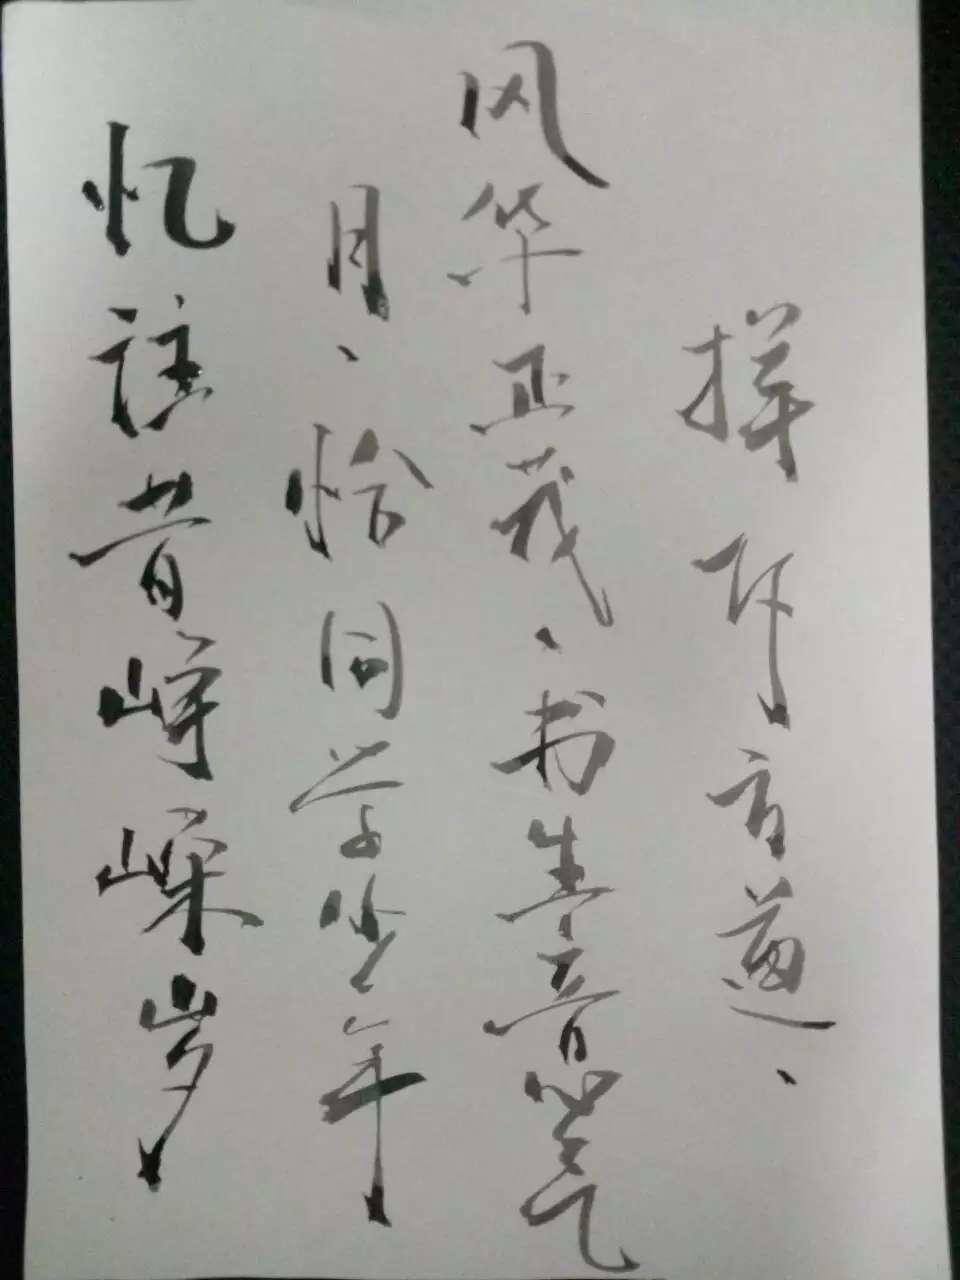 忆往昔峥嵘岁
月、恰同学少年
风华正茂、书生意气
挥斥方遒、